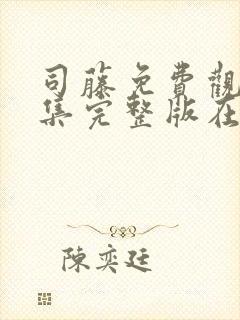 司藤免費觀
集完整版在
陳奕廷